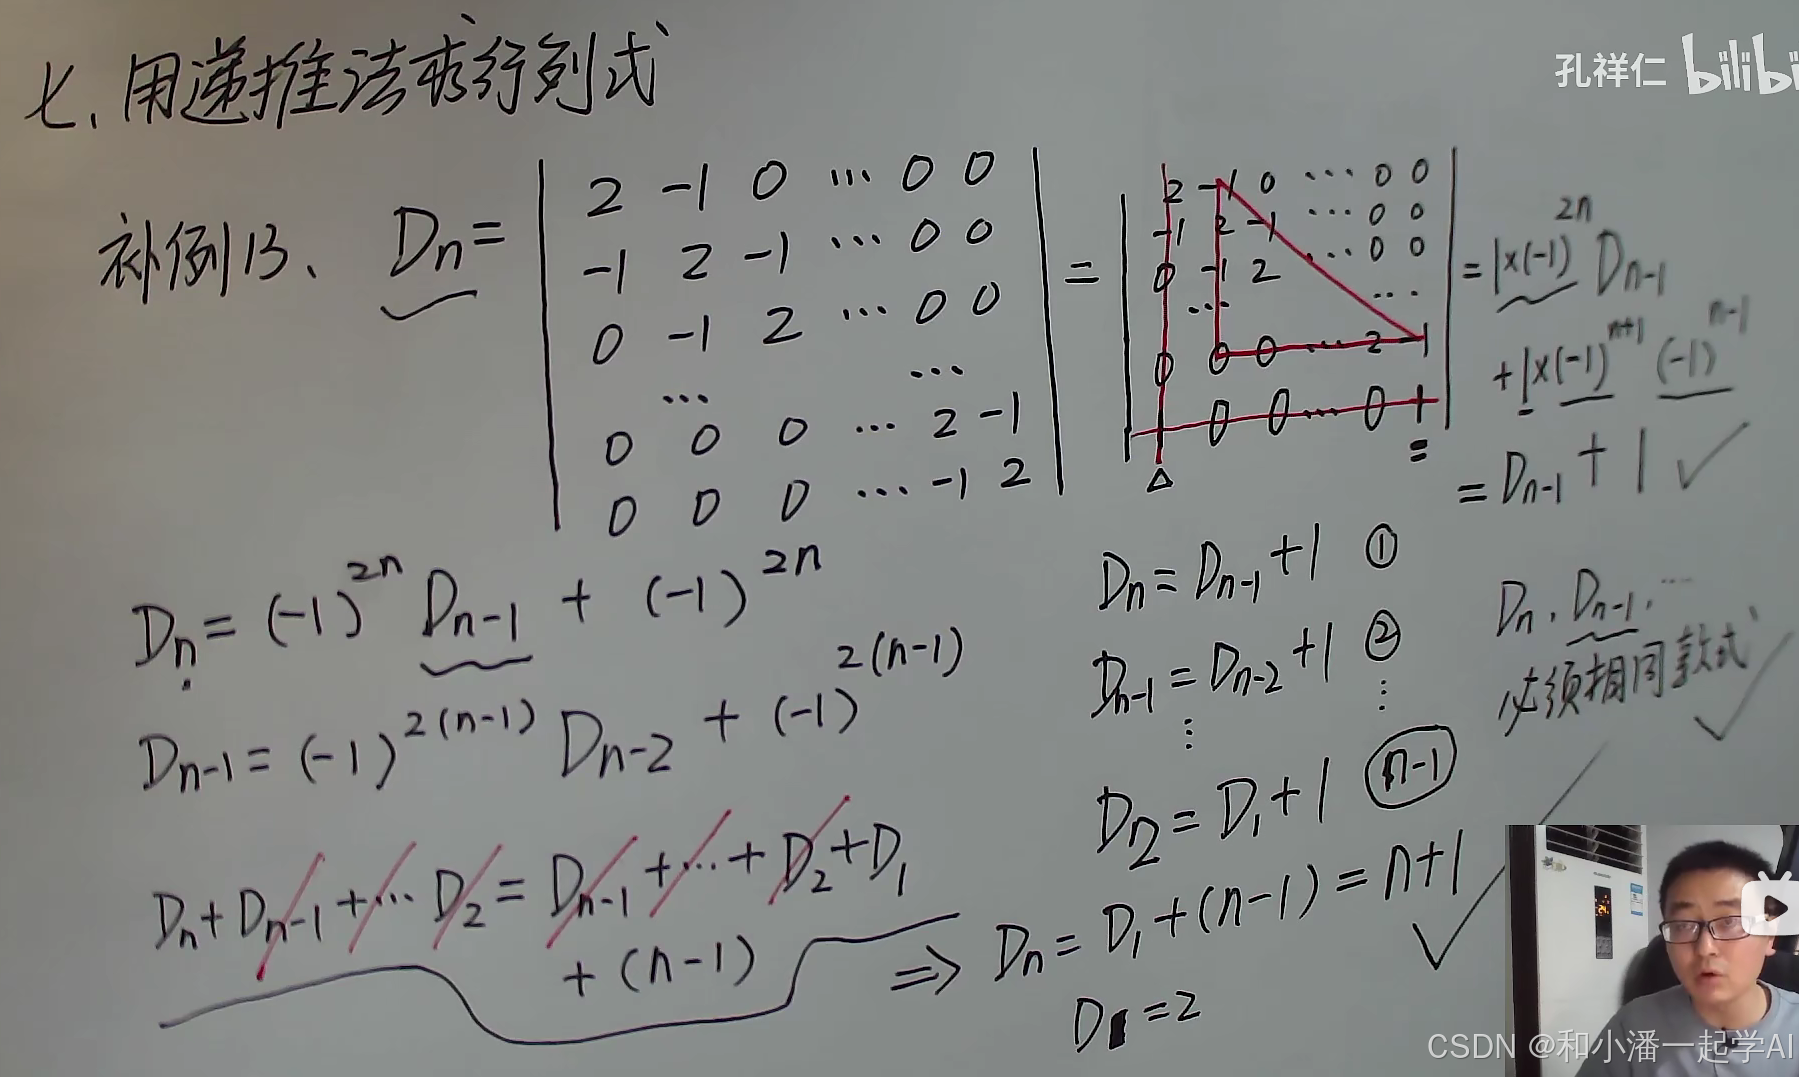 七、用递推法求行列式
孔祥仁 bilibi
补例13、 Dn =
2 -1 0 ... 0 0
-1 2 -1 ... 0 0
0 -1 2 ... 0 0
... ...
0 0 0 ... 2 -1
0 0 0 ... -1 2
=
2 -1 0 ... 0 0
-1 2 -1 ... 0 0
0 -1 2 ... 0 0
... ...
0 0 0 ... 2 -1
1 0 0 ... 0 1
= 1×(-1)^2n Dn-1
+1×(-1)^n+1 (-1)^n-1
= Dn-1 + 1 ✓
Dn = (-1)^2n Dn-1 + (-1)^2n
Dn-1 = (-1)^2(n-1) Dn-2 + (-1)^2(n-1)
Dn + Dn-1 + ... D2 = Dn-1 + ... + D2 + D1
+ (n-1)
Dn = Dn-1 + 1 ①
Dn-1 = Dn-2 + 1 ②
⋮ ⋮
D2 = D1 + 1 (n-1)
⇒ Dn = D1 + (n-1) = n+1 ✓
D1 = 2
Dn, Dn-1, ...
必须相同款式 ✓
CSDN @和小潘一起学AI